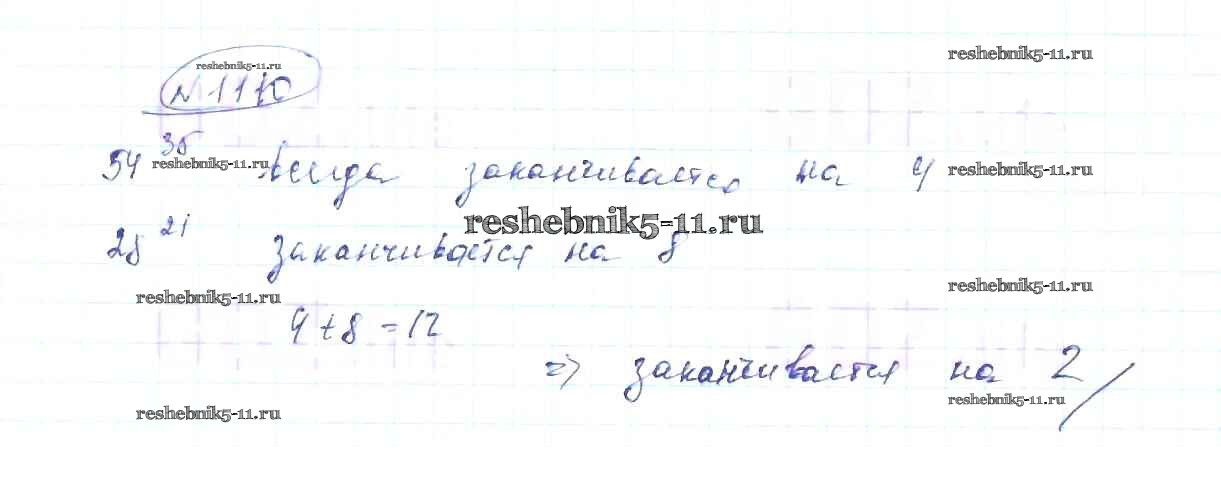 reshebnik5-11.ru
reshebnik5-11.ru
№ 1110
54^35 всегда заканчивается на 4
reshebnik5-11.ru
reshebnik5-11.ru
reshebnik5-11.ru
28^21 заканчивается на 8
reshebnik5-11.ru
reshebnik5-11.ru
4+8=12
=> заканчивается на 2
reshebnik5-11.ru
reshebnik5-11.ru